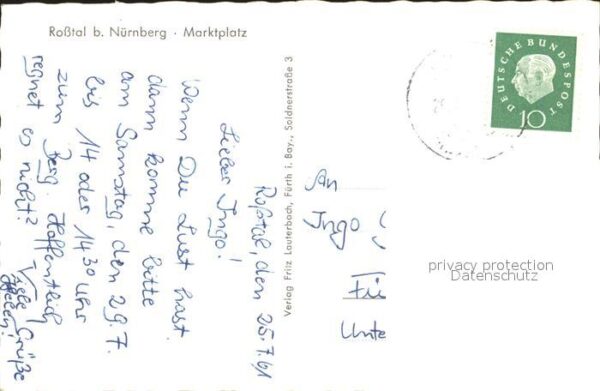 Roßtal b. Nürnberg · Marktplatz
Roßtal, den 25.7.61
Lieber Ingo!
Wenn Du Lust hast
dann komme bitte
am Samstag, den 29.7.
bis 14 oder 14³⁰ Uhr
zum Berg. Hoffentlich
regnet es nicht?
Viele Grüße
Helen!
Verlag Fritz Lauterbach, Fürth i. Bay., Soldnerstraße 3
DEUTSCHE BUNDESPOST
10
An
Ingo
privacy protection
Datenschutz